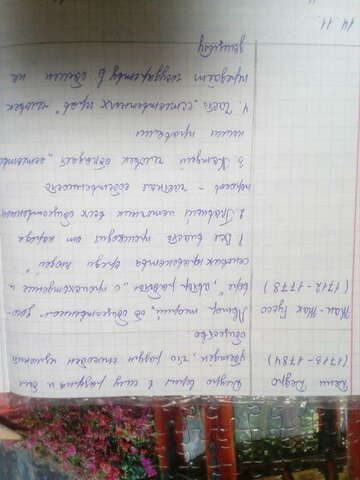 Дени Дидро
(1713-1784)
Дидро верил в силу разума и был
убежден, что разум способен изменить
общество
Жан-Жак Руссо
(1712-1778)
Автор теории „об общественном дого-
вора", автор работы „о происхождение и
неравенства среди людей"
1 Вся власть происходит от народа
2. Главный источник всех общественных
пороков - частная собственность
3. Каждый человек обладает „естествен
ными правами
4. Часть „естественных прав" человек
передаёт государству в обмен на
защиту
14.11.